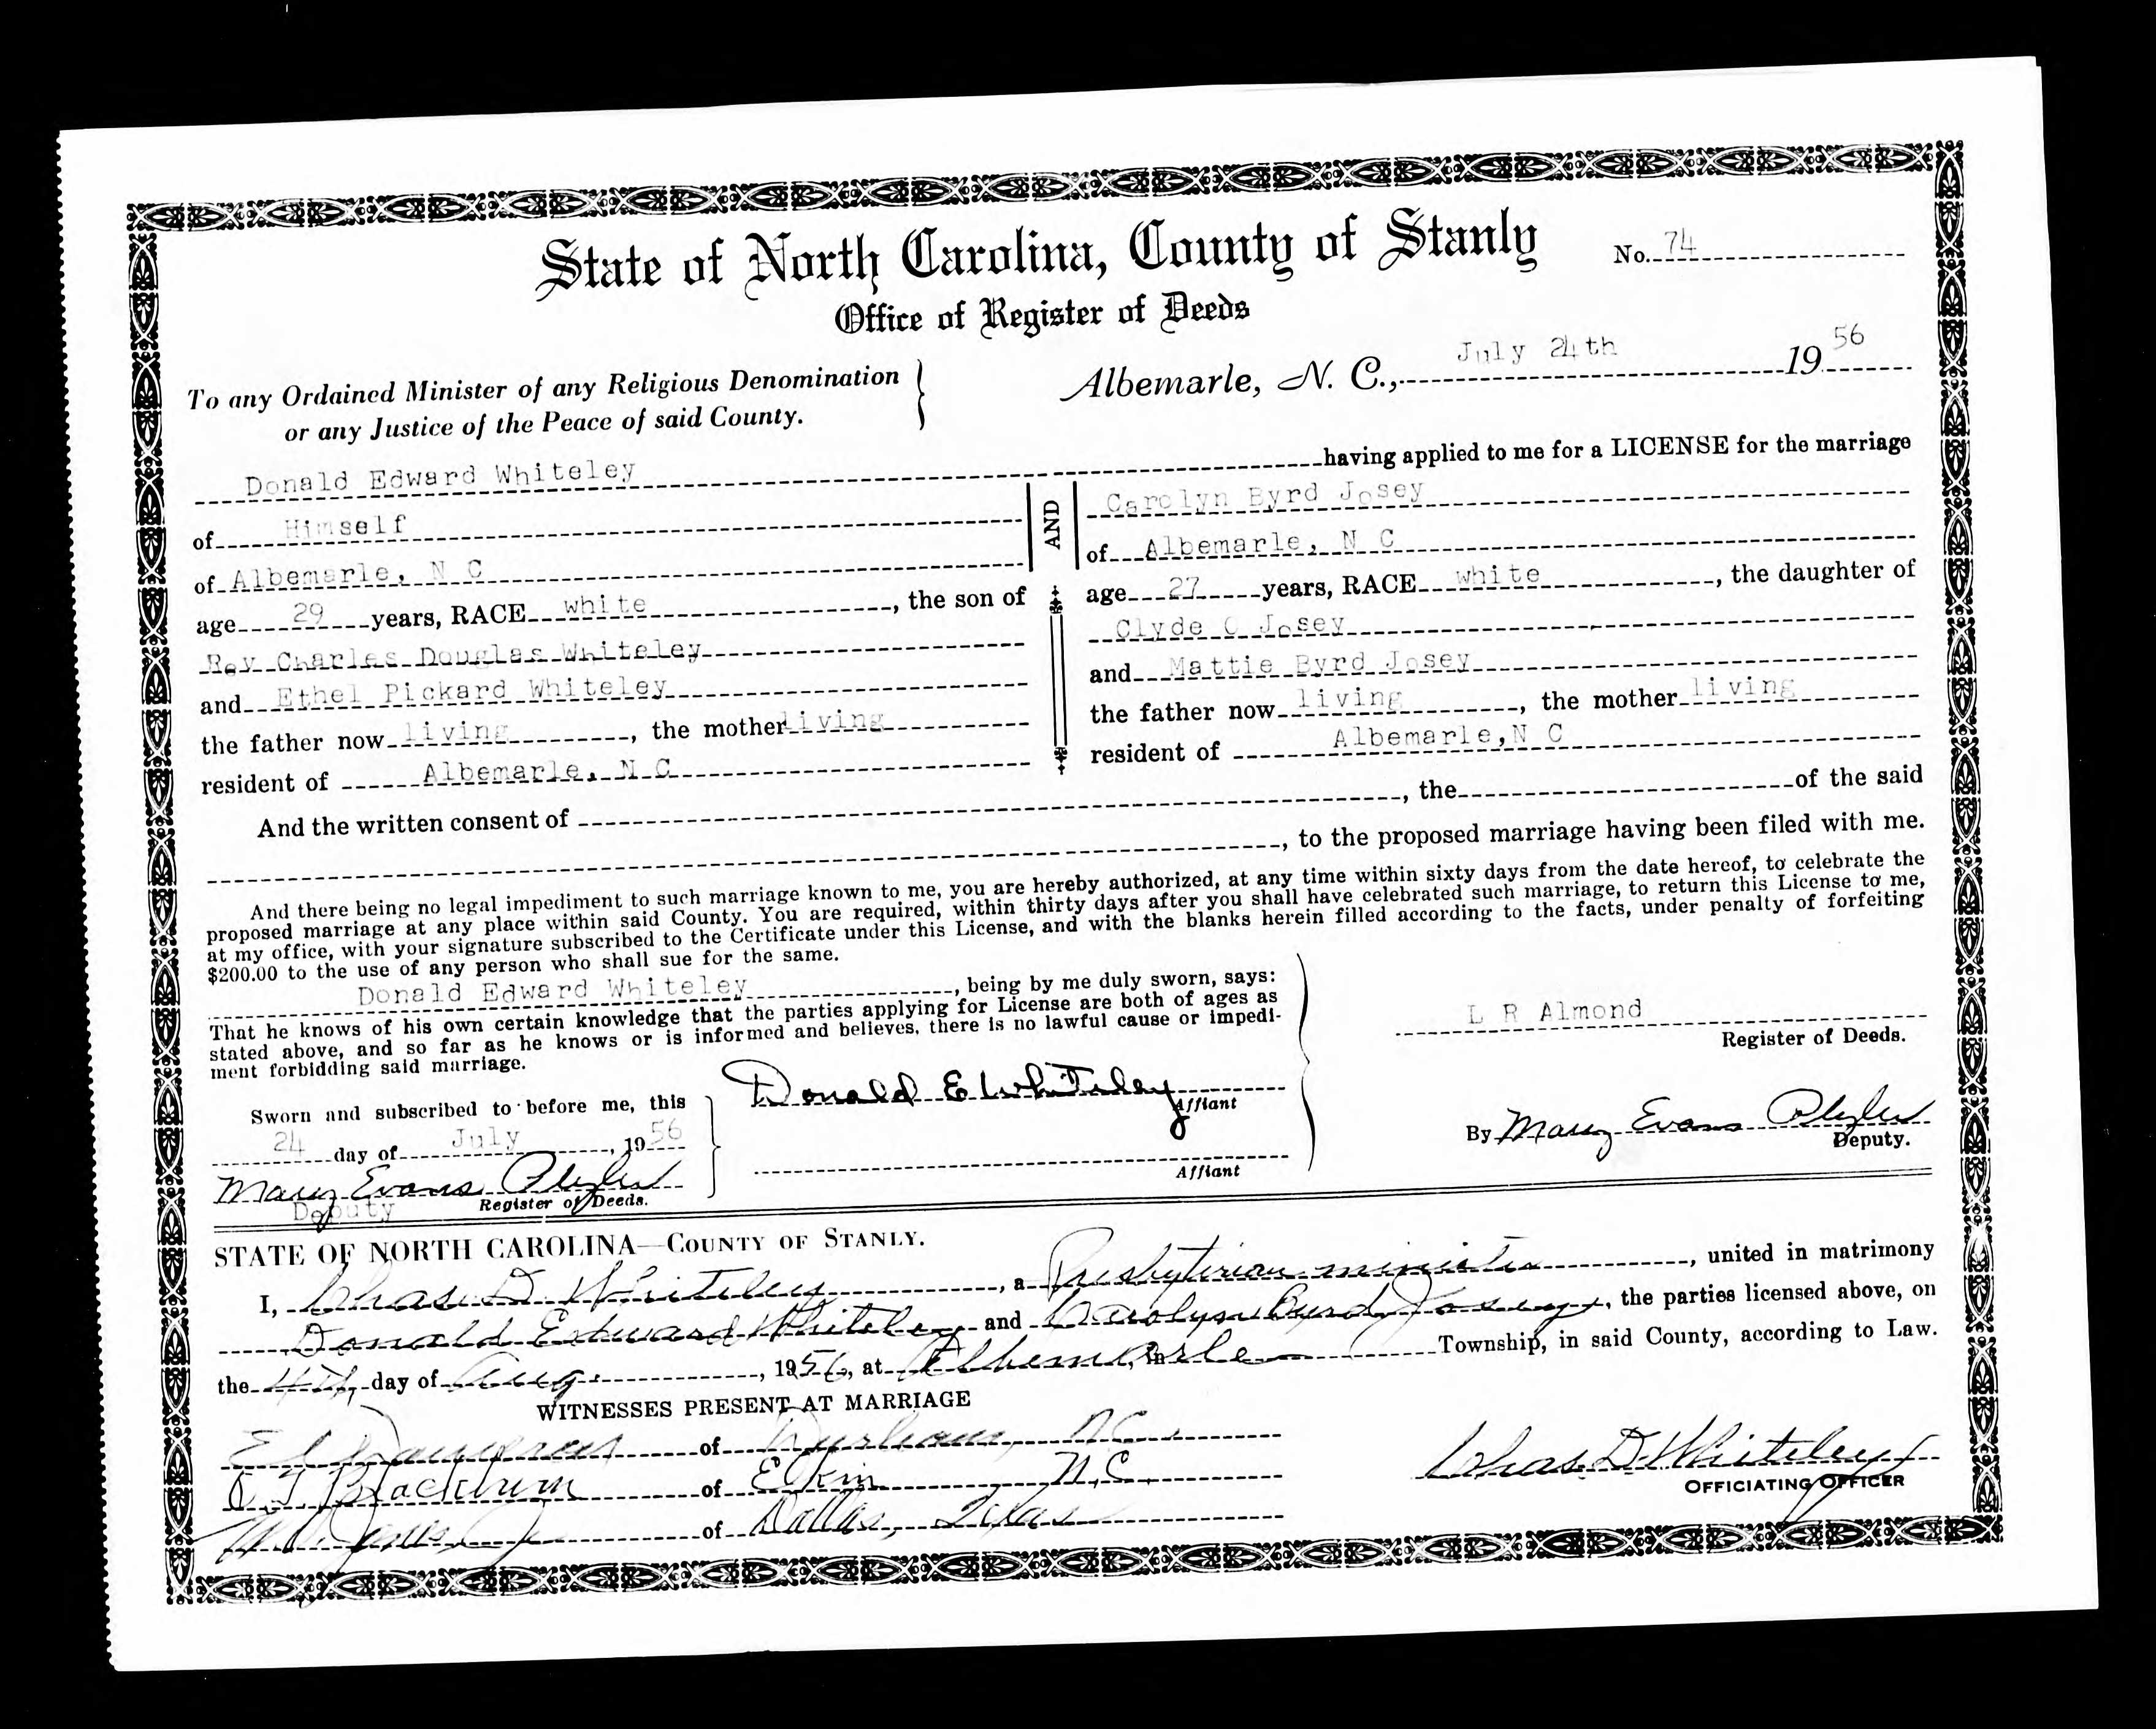 State of North Carolina, County of Stanly No. 74
Office of Register of Deeds
To any Ordained Minister of any Religious Denomination
or any Justice of the Peace of said County.
Albemarle, N. C., July 24th 1956
Donald Edward Whiteley having applied to me for a LICENSE for the marriage
of Himself
of Albemarle, N C
age 29 years, RACE white, the son of
Rev Charles Douglas Whiteley
and Ethel Pickard Whiteley
the father now living, the mother living
resident of Albemarle, N C
AND
Carolyn Byrd Josey
of Albemarle, N C
age 27 years, RACE white, the daughter of
Clyde O Josey
and Mattie Byrd Josey
the father now living, the mother living
resident of Albemarle, N C
And the written consent of , the of the said
, to the proposed marriage having been filed with me.
And there being no legal impediment to such marriage known to me, you are hereby authorized, at any time within sixty days from the date hereof, to celebrate the
proposed marriage at any place within said County. You are required, within thirty days after you shall have celebrated such marriage, to return this License to me,
at my office, with your signature subscribed to the Certificate under this License, and with the blanks herein filled according to the facts, under penalty of forfeiting
$200.00 to the use of any person who shall sue for the same.
Donald Edward Whiteley, being by me duly sworn, says:
That he knows of his own certain knowledge that the parties applying for License are both of ages as
stated above, and so far as he knows or is informed and believes, there is no lawful cause or impedi-
ment forbidding said marriage.
Sworn and subscribed to before me, this
24 day of July, 1956
Mary Evans
Deputy Register of Deeds.
Donald E Whiteley
Affiant
Affiant
L R Almond
Register of Deeds.
By Mary Evans
Deputy.
STATE OF NORTH CAROLINA—COUNTY OF STANLY.
I, Chas D. Whiteley, a Presbyterian minister, united in matrimony
Donald Edward Whiteley and Carolyn Byrd Josey, the parties licensed above, on
the 4th day of Aug., 1956, at Albemarle, in Township, in said County, according to Law.
WITNESSES PRESENT AT MARRIAGE
of Durham, N.C.
Blackburn of Elkin N.C.
of Dallas, Texas
Chas D. Whiteley
OFFICIATING OFFICER